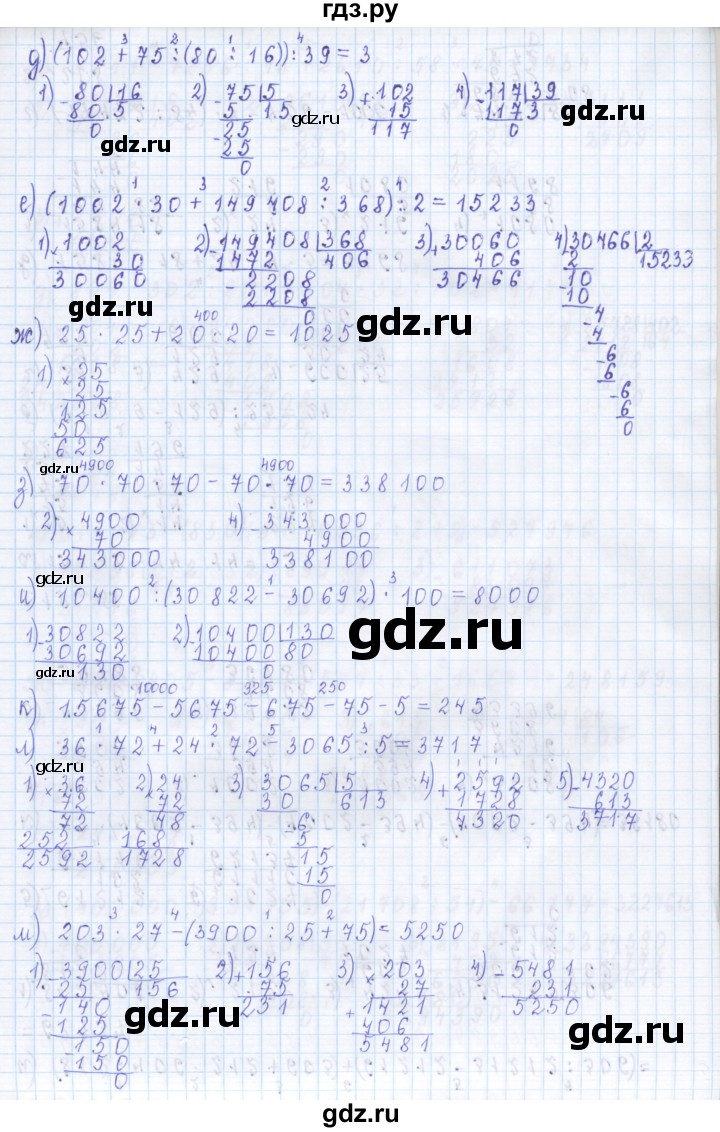 гдз.ру
д) (102 + 75 : (80 : 16)) : 39 = 3
1) 80 | 16
80 5
0
2) 75 | 5
5 15
25
25
0
3) + 102
15
117
4) 117 | 39
117 3
0
gdz.ru
gdz.ru
gdz.ru
е) (1002 · 30 + 149408 : 368) : 2 = 15233
1) × 1002
30
30060
2) 149408 | 368
1472 406
2208
2208
0
3) + 30060
406
30466
4) 30466 | 2
2 15233
10
10
4
4
6
6
6
6
0
gdz.ru
gdz.ru
400
ж) 25 · 25 + 20 · 20 = 1025
1) × 25
25
125
50
625
gdz.ru
4900 4900
з) 70 · 70 · 70 - 70 · 70 = 338100
2) × 4900
70
343000
4) - 343000
4900
338100
gdz.ru
и) 10400 : (30822 - 30692) · 100 = 8000
1) - 30822
30692
130
2) 10400 | 130
10400 80
0
gdz.ru
gdz.ru
10000 325 250
к) 15675 - 5675 - 675 - 75 - 5 = 245
л) 36 · 72 + 24 · 72 - 3065 : 5 = 3717
1) × 36
72
72
252
2592
2) × 24
72
48
168
1728
3) 3065 | 5
30 613
6
5
15
15
0
4) + 2592
1728
4320
5) - 4320
613
3717
gdz.ru
gdz.ru
м) 203 · 27 - (3900 : 25 + 75) = 5250
1) 3900 | 25
25 156
140
125
150
150
0
2) + 156
75
231
3) × 203
27
+ 1421
406
5481
4) - 5481
231
5250
gdz.ru
gdz.ru
gdz.ru
gdz.ru